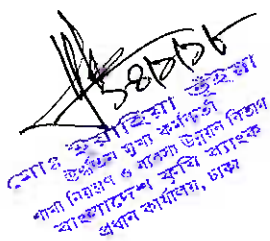 মোঃ ইয়াহিয়া ভূঁইয়া
ঊর্ধ্বতন মুখ্য কর্মকর্তা
শাখা নিয়ন্ত্রণ ও ব্যবসা উন্নয়ন বিভাগ
বাংলাদেশ কৃষি ব্যাংক
প্রধান কার্যালয়, ঢাকা